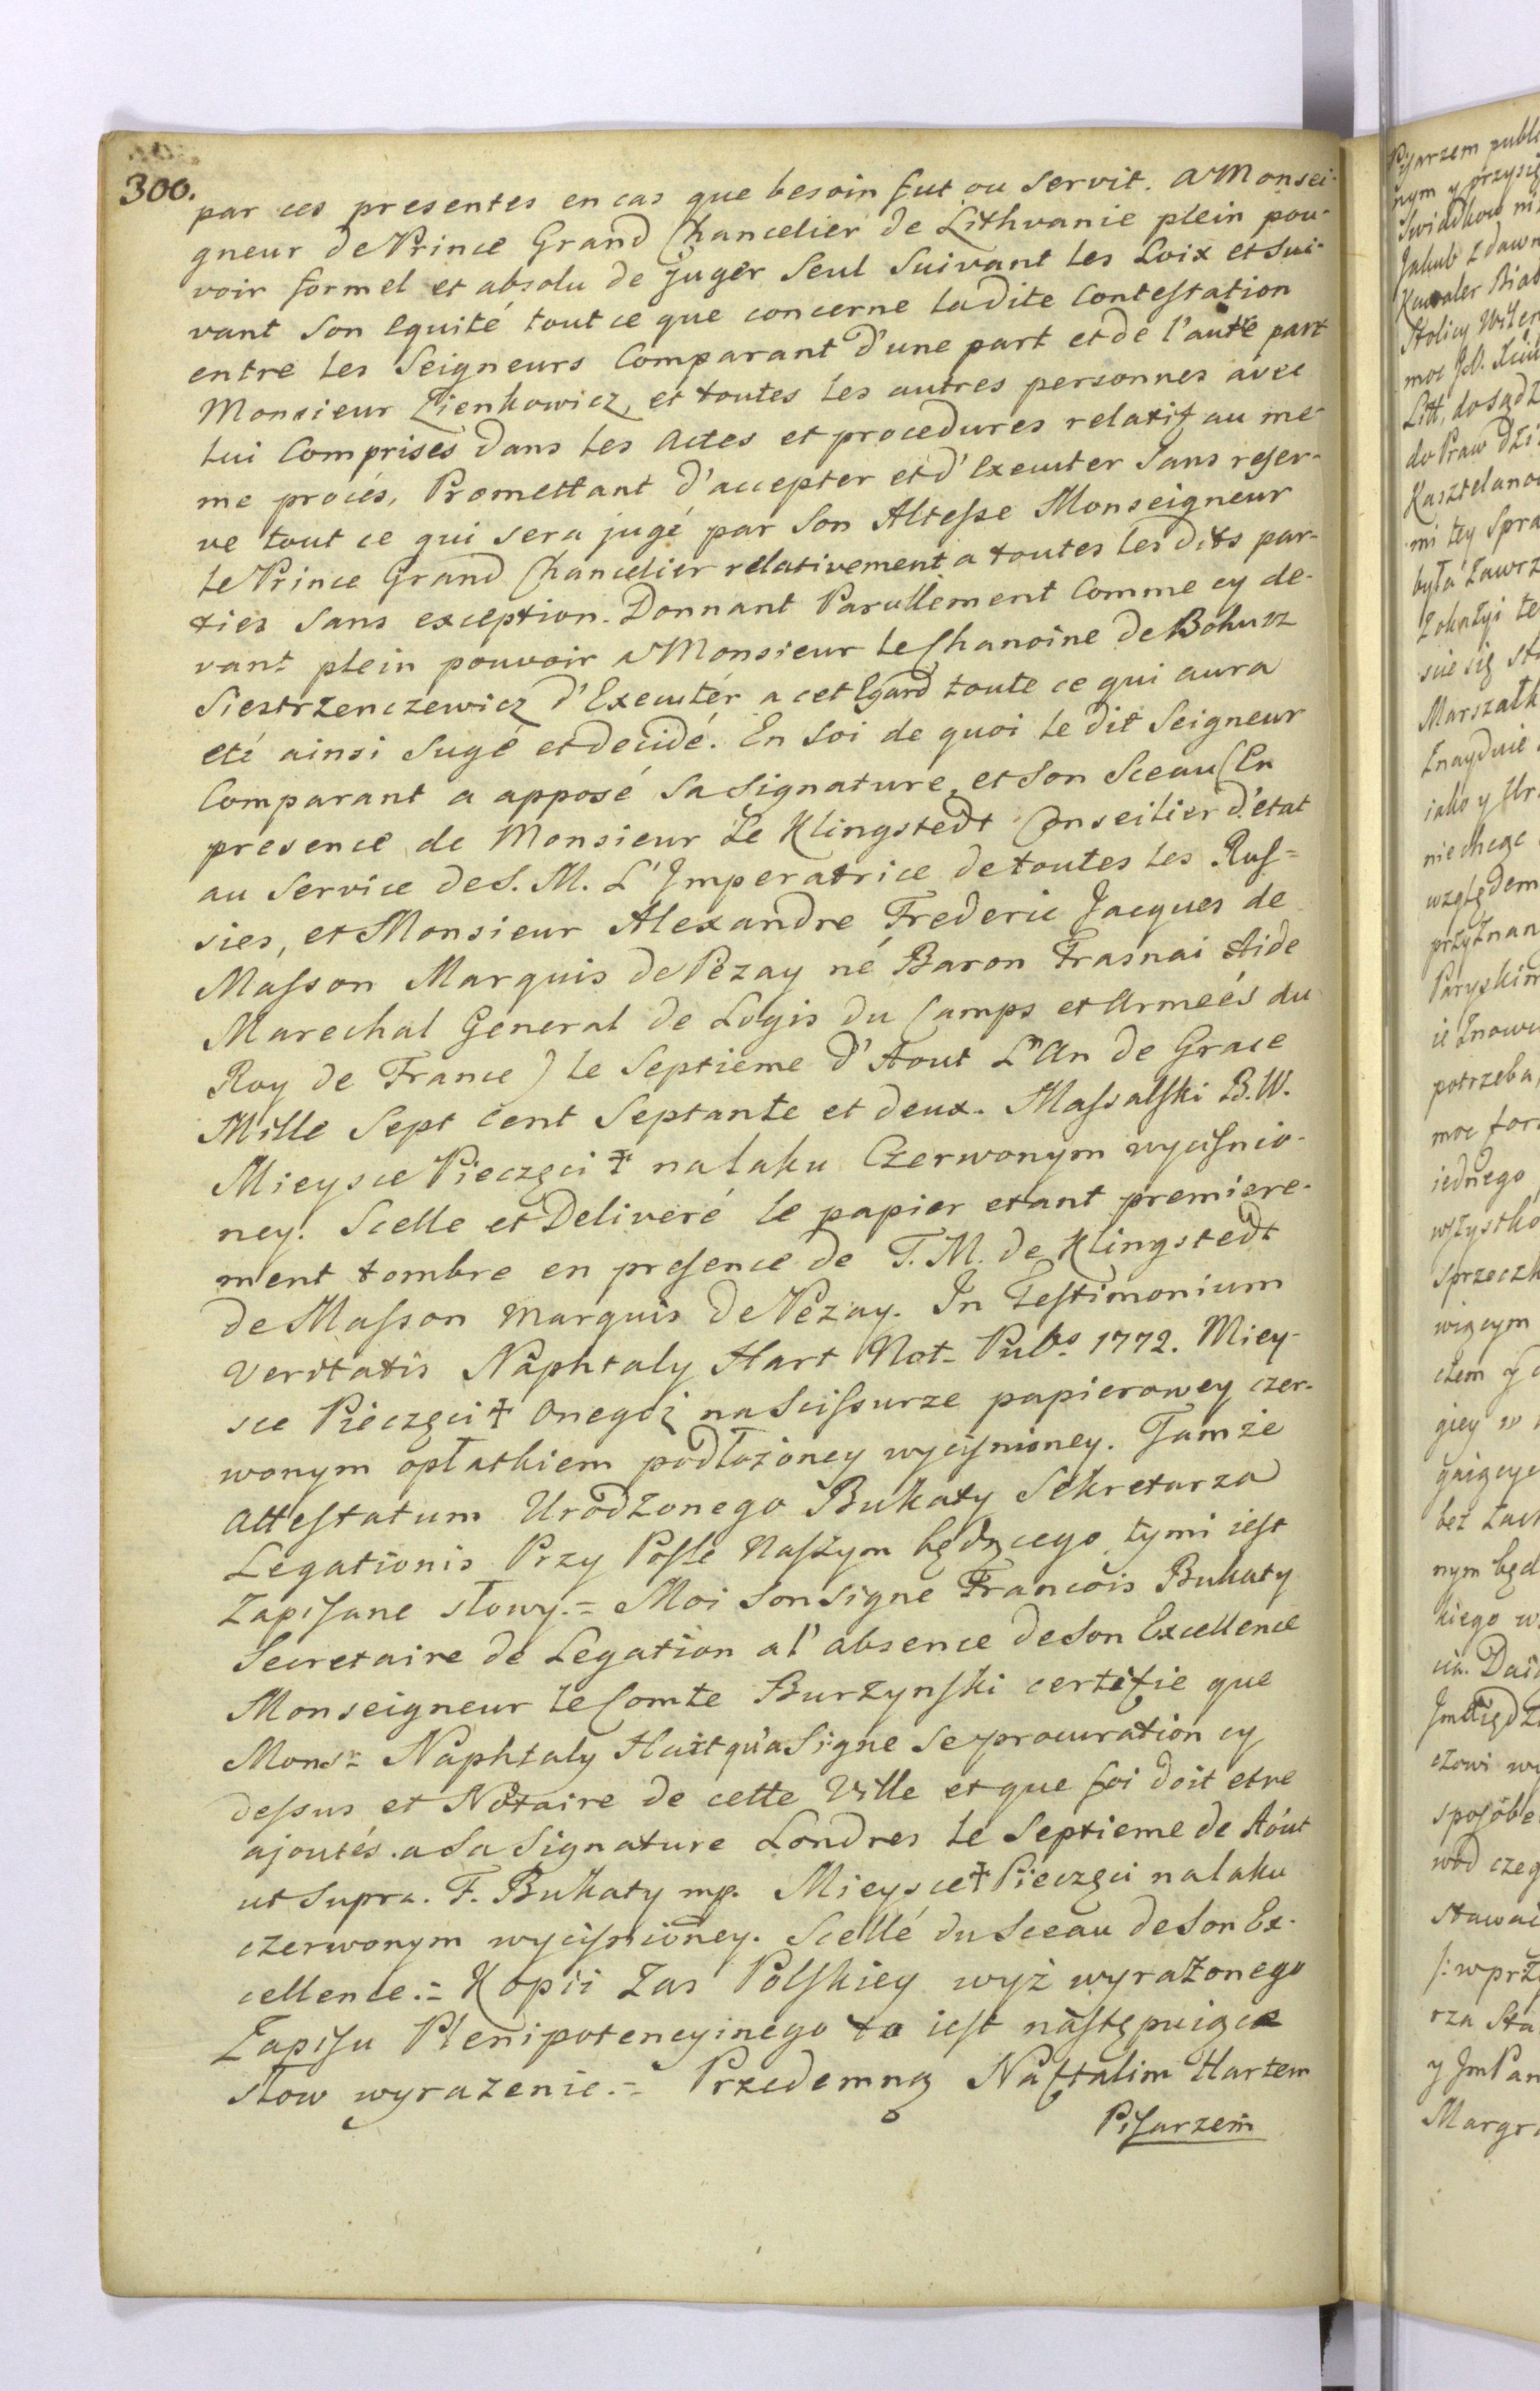 300.
par ces presentes en cas que besoin fut ou servit. a Monsei-
gneur de Prince Grand Chancelier de Lithvanie plein pou-
voir formel et absolu de juger Seul Suivant les Loix et sui-
vant son equité tout ce que concerne ladite Contestation
entre les Seigneurs Comparant d'une part et de l'autre part
Monsieur Zienkowicz, et toutes les autres personnes avec
lui Comprises dans les actes et procedures relatif au me-
me procés, Promettant d'accepter et d'Executer Sans reser-
ve tout ce qui sera jugé par Son Altesse Monseigneur
le Prince Grand Chancelier relativement a toutes lesdits par-
ties sans exception. Donnant Parullement Comme cy de-
vant plein pouvoir a Monsieur le Chanoine de Bohusz
Siestrzenczewicz d'Executér a cet Egard toute ce qui aura
eté ainsi Sugé et decidé. En foi de quoi le dit Seigneur
Comparant a apposé Sa Signature, et Son Sceau (En
presence de Monsieur Le Klingstedt Conseilier d'etat
au Service de S. M. L'Imperatrice de toutes les Rus=
sies, et Monsieur Alexandre Frederic Jacques de
Masson Marquis de Pezay né Baron Frasnai Aide
Marechal General de Logis du Camps et Armeés du
Roy de France) le Septieme d'Aout L'An de Grace
Mille Sept Cent Septante et deux. Massalski B. W.
Mieysce Pieczęci ☩ na laku Czerwonym wyciśnio-
ney. Scelle et Deliveré le papier etant premiere-
ment tombre en presence de T. M. de Klingstedt
de Masson Marquis de Pezay. In Testimonium
Veritatis Naphtaly Hart Not- Pubs 1772. Miey-
sce Pieczęci ☩ onegoż na Scissurze papierowey czer-
wonym opłatkiem podłożoney wyciśnioney. Tamże
Attestatum Urodzonego Bukaty Sekretarza
Legationis Przy Pośle Naszym będącego tymi iest
Zapisane słowy.= Moi Sonsigne Francois Bukaty
Secretaire de Legation a l'absence de Son Excellence
Monseigneur le Comte Burzynski certifie que
Monsr Naphtaly Hart qu'a Signe Se procuration cy
dessus et Notaire de cette Ville et que foi doit etre
ajoutés. a Sa Signature Londres le Septieme de Aóut
ut Supra. F. Bukaty mp. Mieysce ☩ Pieczęci na laku
czerwonym wyciśnioney. Scellé du Sceau de Son Ex-
cellence.= Kopii Zas Polskiey wyż wyrażonego
Zapisu Plenipotencyinego ta iest następuiące
słow wyrażenie.= Przedemną Naftalim Hartem
Pisarzem
Pisarzem publi
nym y przysię
Swiadkow ni
Jakub z dawn
Kawaler Biał
Stolicy Wilen
Litt, do sądz
do Praw dzi
Kasztelano
mi tey Spra
była zawrz
Zokazyi te
scie się st
Marszałk
Znayduie
niechcąc
względem
przyznan
Paryskim
ie Znowu
potrzeba,
moc for
iednego
wszystko
sprzeczk
wiącym
bez zach
nym będ
kiego w
czowi wy
sposobe
wod czeg
stawai
rza Sta
y JmPan
Margra